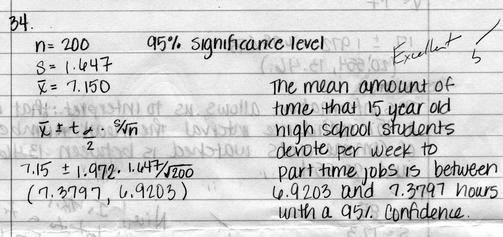 34.
n = 200    95% significance level
S = 1.647
x̄ = 7.150
Excellent
The mean amount of
time that 15 year old
high school students
devote per week to
part time jobs is between
6.9203 and 7.3797 hours
with a 95% confidence.
x̄ ± t α/2 · s/√n
7.15 ± 1.972 · 1.647/√200
(7.3797, 6.9203)